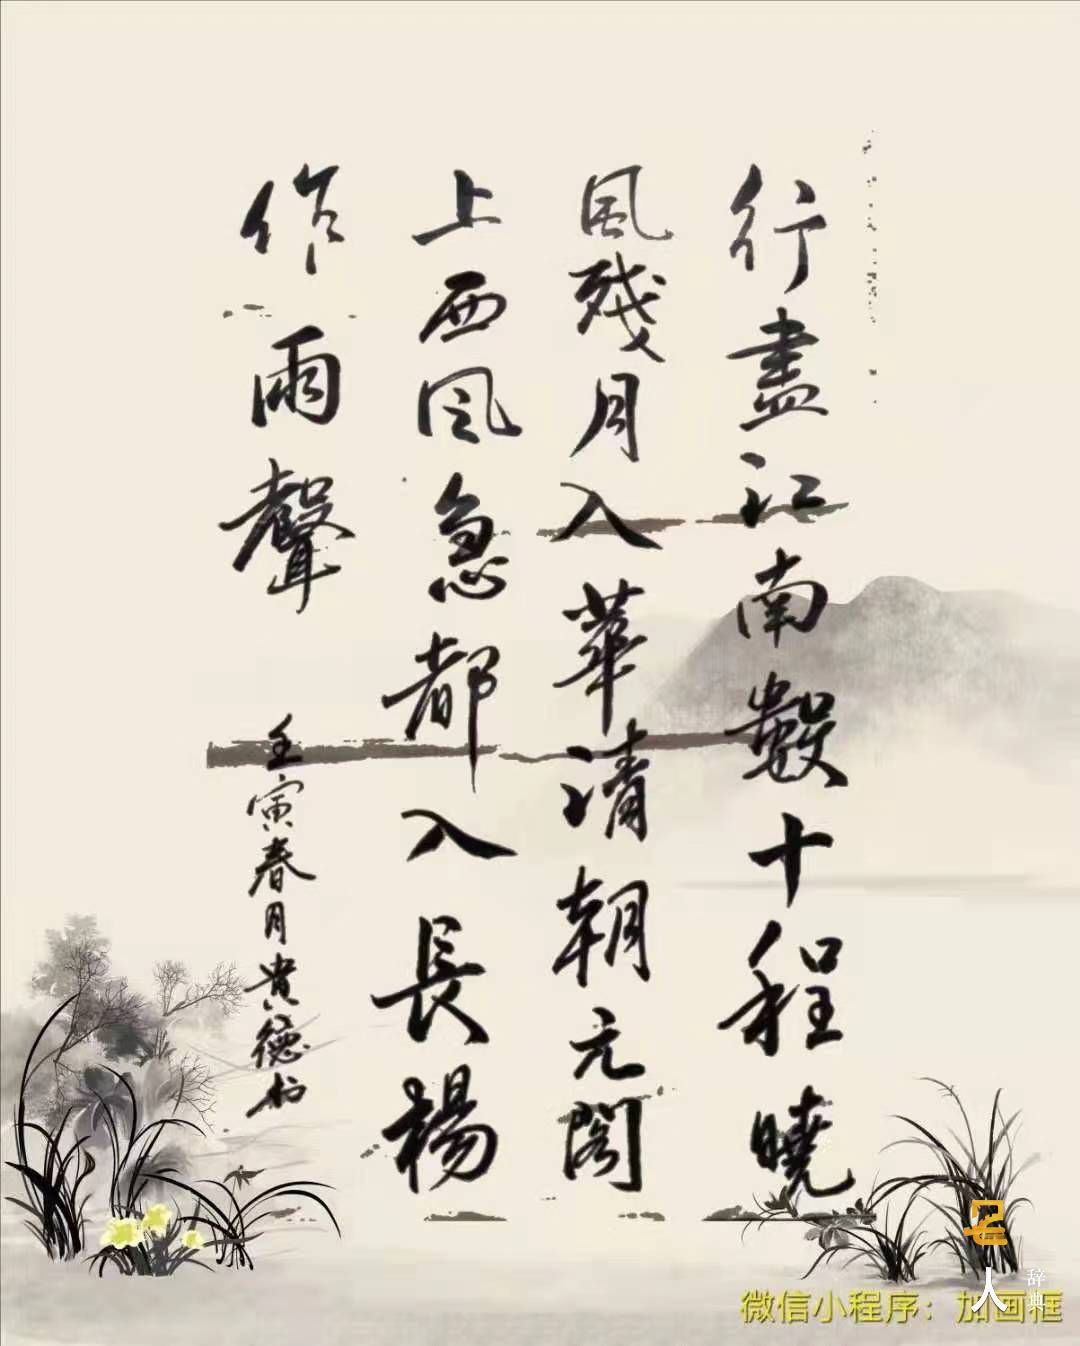 行盡江南數十程曉
風殘月入華清朝元閣
上西风急都入長楊
作雨聲
壬寅春月貴德书
名人辞典
微信小程序：加画框